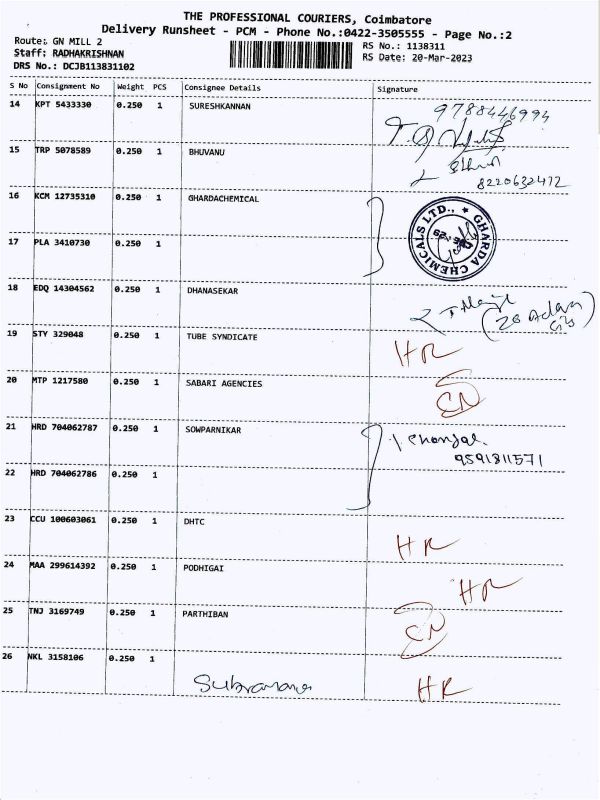 THE PROFESSIONAL COURIERS, Coimbatore
Delivery Runsheet - PCM - Phone No.:0422-3505555 - Page No.:2
Route: GN MILL 2
Staff: RADHAKRISHNAN
DRS No.: DCJB113831102
RS No.: 1138311
RS Date: 20-Mar-2023
S No Consignment No Weight PCS Consignee Details Signature
14 KPT 5433330 0.250 1 SURESHKANNAN
9788446994
15 TRP 5078589 0.250 1 BHUVANU
8220632472
16 KCM 12735310 0.250 1 GHARDACHEMICAL
GHARDA CHEMICALS LTD.,
17 PLA 3410730 0.250 1
18 EDQ 14304562 0.250 1 DHANASEKAR
19 STY 329048 0.250 1 TUBE SYNDICATE HR
20 MTP 1217580 0.250 1 SABARI AGENCIES CN
21 HRD 704062787 0.250 1 SOWPARNIKAR
9591811571
22 HRD 704062786 0.250 1
23 CCU 100603061 0.250 1 DHTC HR
24 MAA 299614392 0.250 1 PODHIGAI HR
25 TNJ 3169749 0.250 1 PARTHIBAN CN
26 NKL 3158106 0.250 1 HR